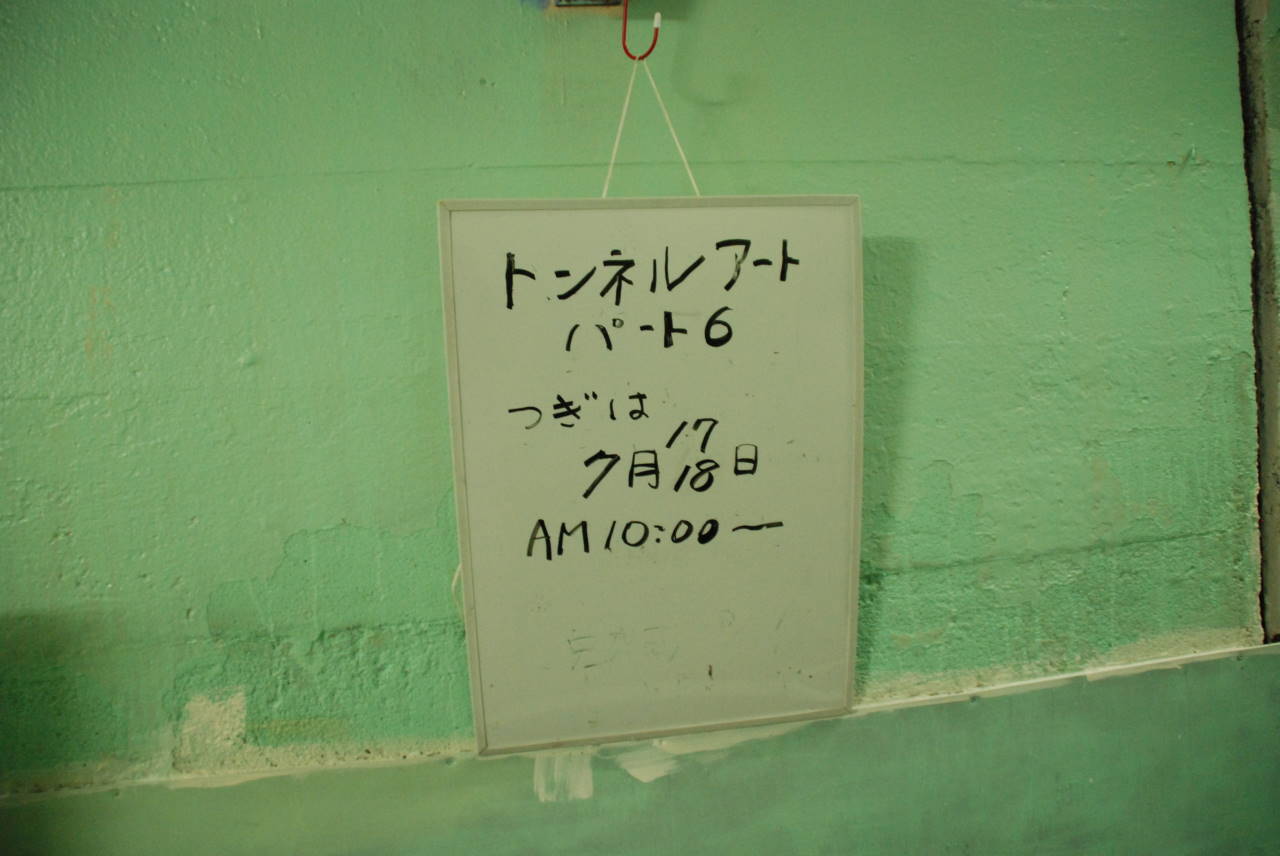 トンネルアート
パート6
つぎは
17
7月18日
AM10:00〜